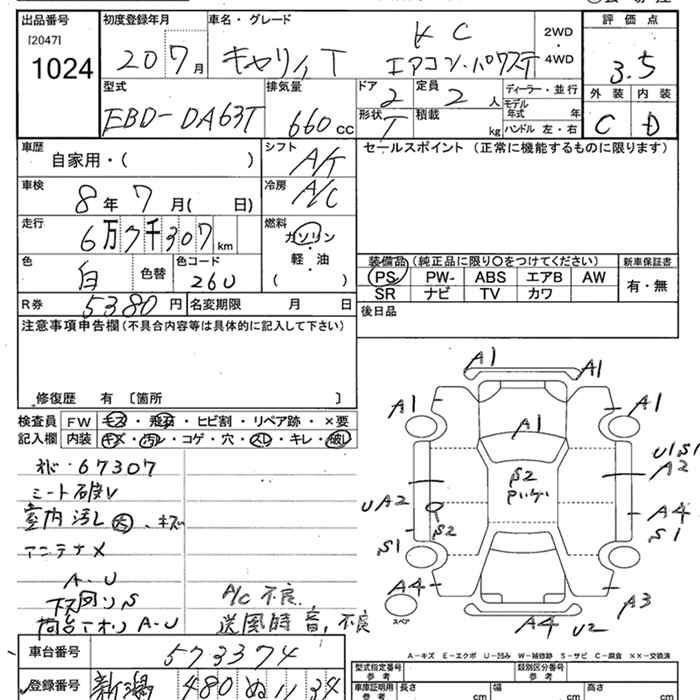 出品番号 初度登録年月 車名・グレード 評価点
[2047]
1024
20 7月 キャリィT KC エアコン・パワステ 2WD 4WD 3.5
外装 内装
C D
型式 EBD-DA63T
排気量 660cc
ドア 2 定員 2人
形状 T 積載 kg
ディーラー・並行
モデル年式 年
ハンドル 左・右
車歴 自家用・( )
シフト A/T
車検 8年7月( 日)
冷房 A/C
走行 6万7千307km
燃料 ガソリン・軽油 ( )
色 白 色替 色コード 26U
R券 5380円 名変期限 月 日
セールスポイント(正常に機能するものに限ります)
装備品(純正品に限り○をつけてください) 新車保証書
PS PW ABS エアB AW 有・無
SR ナビ TV カワ
後日品
注意事項申告欄(不具合内容等は具体的に記入して下さい)
修復歴 有 〔箇所 〕
検査員 FW キズ・飛石・ヒビ割・リペア跡・×要
記入欄 内装 キズ・汚レ・コゲ・穴・スレ・キレ・破レ
67307
室内汚レ 大、キズ
アンテナ
A・U
下回りS
荷台 A・U
A/C不良
送風時音、不良
A1 A1
A1 A1 A1
U1S1
A2
S2
UA2 S2 A4
S1 S1
A4 A3
スペア
A4 U2
A-キズ E-エクボ U-凹み W-補修跡 S-サビ C-腐食 ××-交換済
車台番号 573374
型式指定番号 参考 類別区分番号 参考
登録番号 新潟 480 ぬ 11 34
車庫証明用 参考 長さ cm 幅 cm 高さ cm